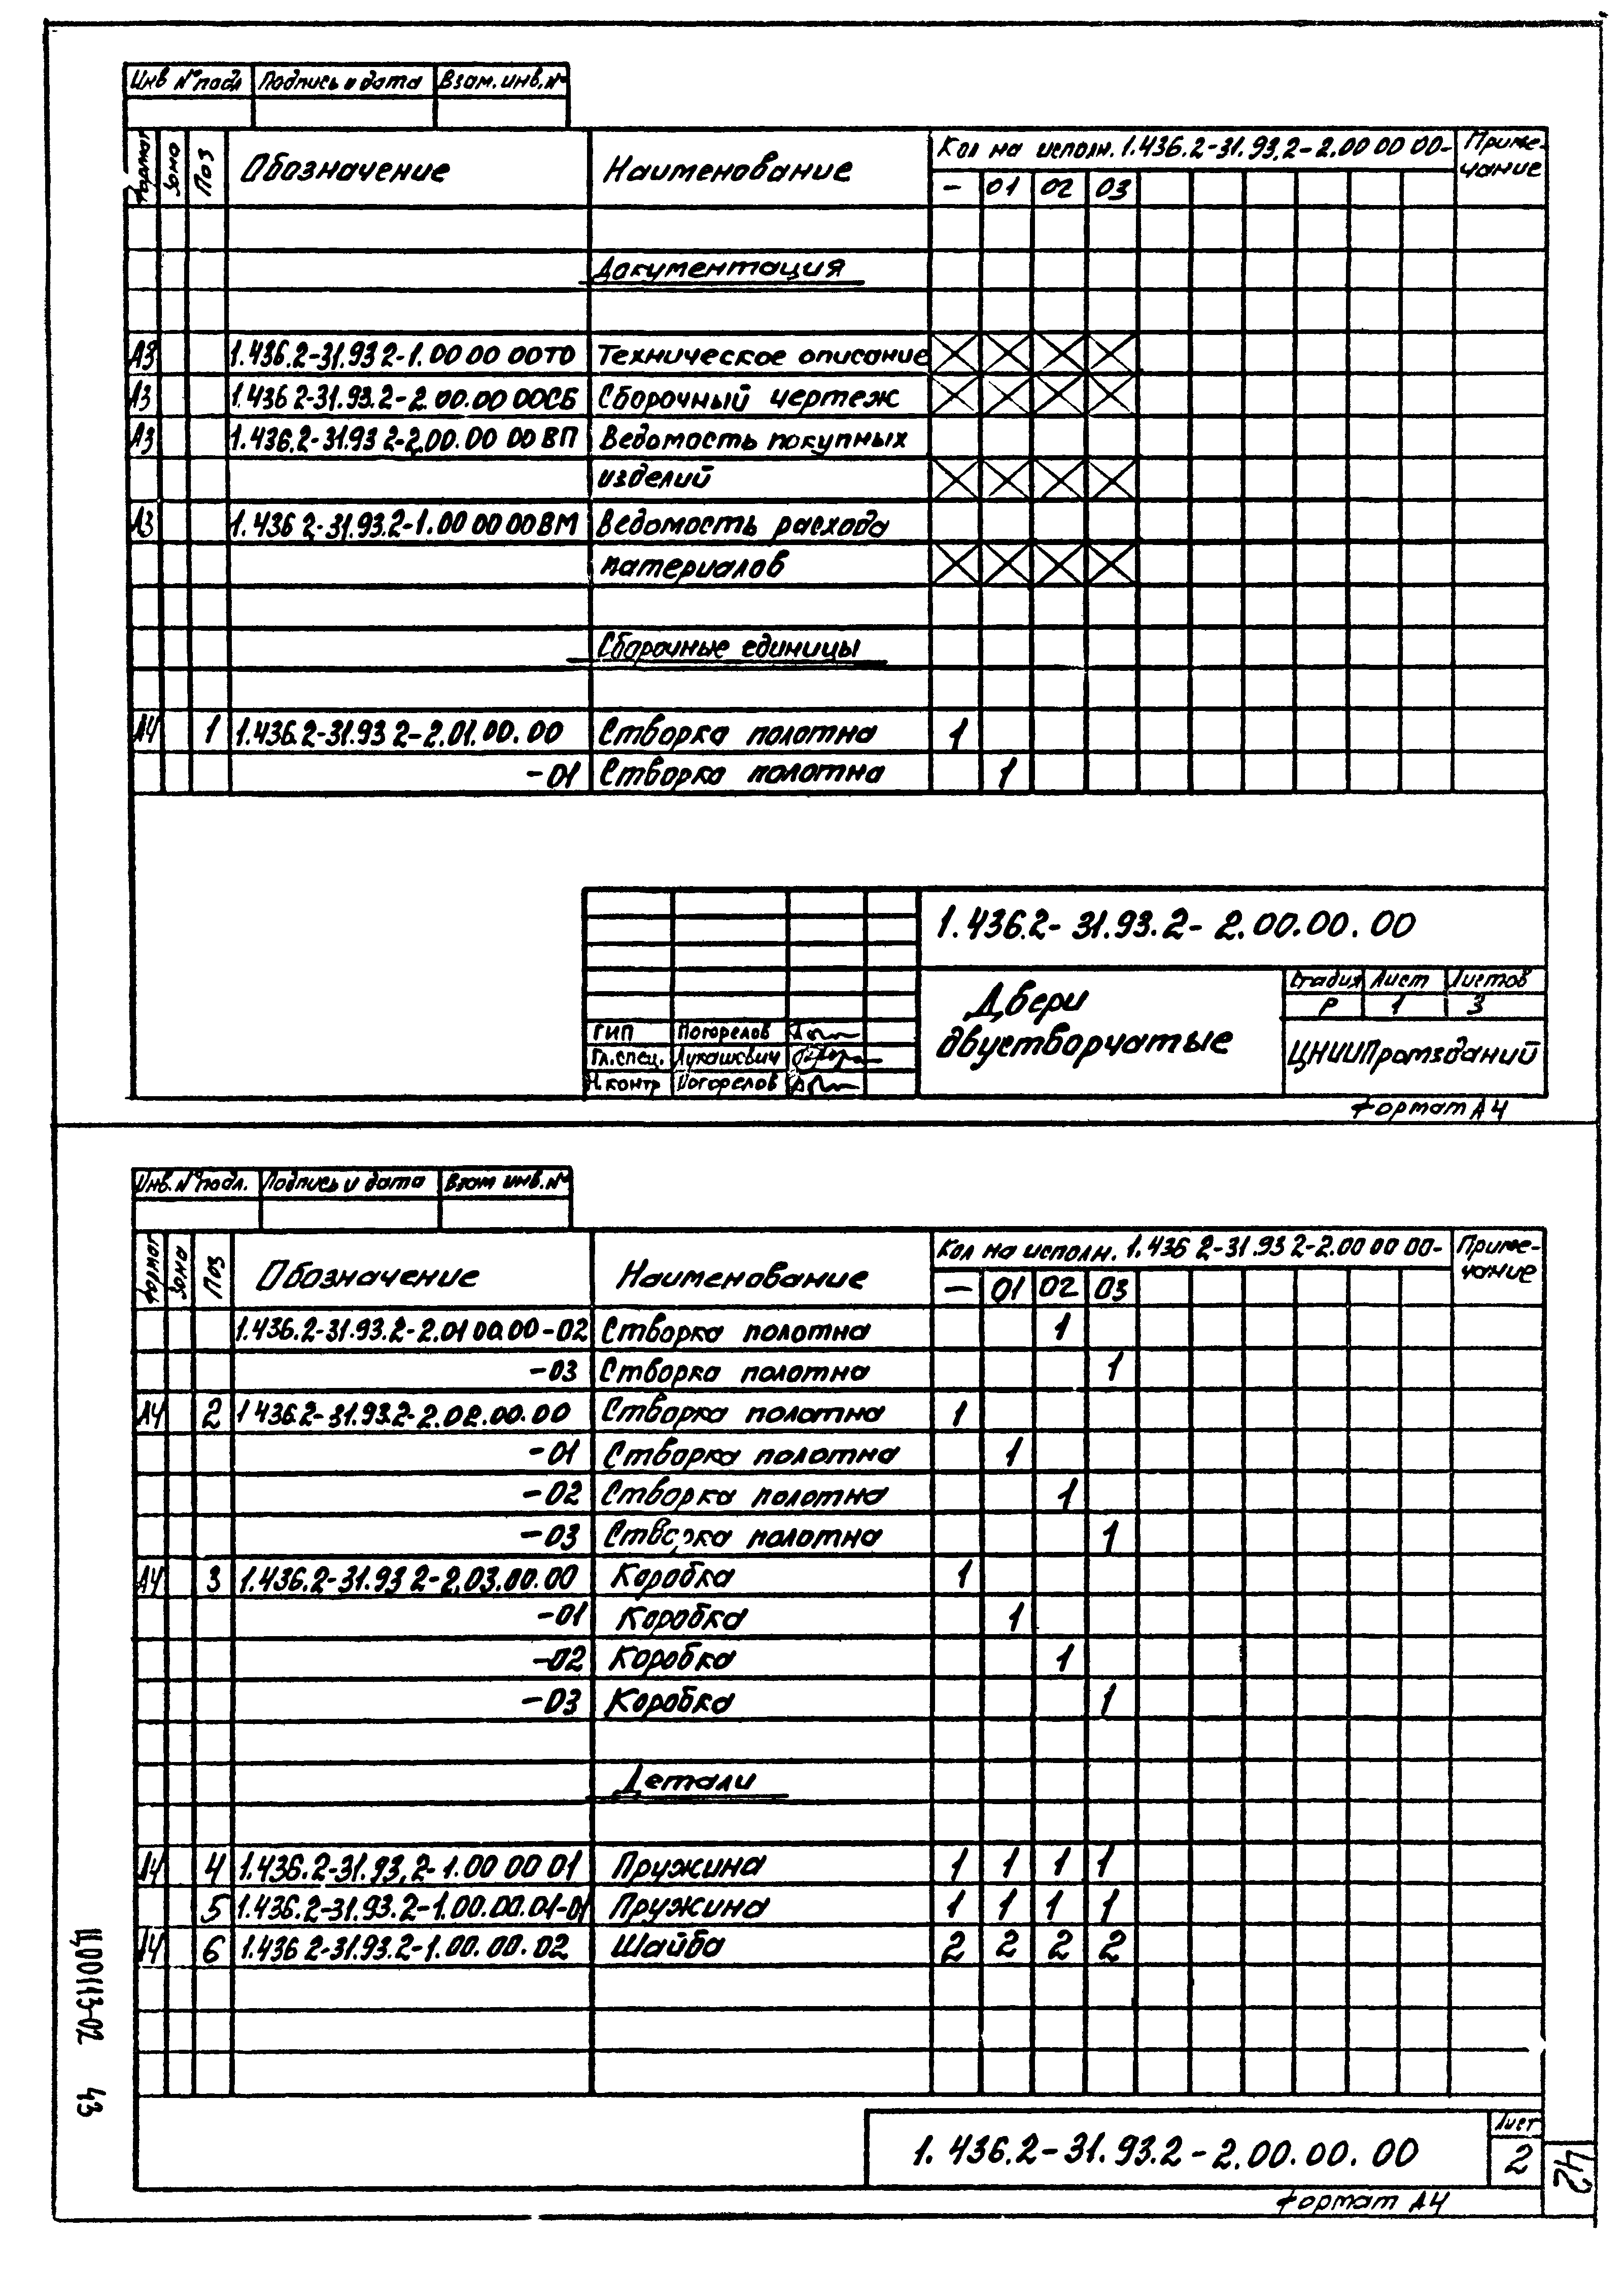 Инв № подл Подпись и дата Взам. инв. №
Формат Зона Поз Обозначение Наименование Кол на исполн. 1.436.2-31.93.2-2.00 00 00- Приме-
чание
- 01 02 03
Документация
А3 1.436.2-31.93 2-1.00 00 00ТО Техническое описание
А3 1.436 2-31.93.2-2.00.00 00СБ Сборочный чертеж
А3 1.436.2-31.93 2-2.00.00 00 ВП Ведомость покупных
изделий
А3 1.436 2-31.93.2-1.00 00 00 ВМ Ведомость расхода
материалов
Сборочные единицы
А4 1 1.436.2-31.93 2-2.01.00.00 Створка полотна 1
-01 Створка полотна 1
1.436.2-31.93.2-2.00.00.00
Двери
двустворчатые
Стадия Лист Листов
Р 1 3
ЦНИИПромзданий
ГИП Погорелов
Гл.спец. Лукашевич
Н.контр Погорелов
Формат А4
Инв. № подл. Подпись и дата Взам инв. №
Формат Зона Поз Обозначение Наименование Кол на исполн. 1.436 2-31.93 2-2.00 00 00- Приме-
чание
- 01 02 03
1.436.2-31.93.2-2.01 00.00-02 Створка полотна 1
-03 Створка полотна 1
А4 2 1 436.2-31.93.2-2.02.00.00 Створка полотна 1
-01 Створка полотна 1
-02 Створка полотна 1
-03 Створка полотна 1
А4 3 1.436.2-31.93 2-2.03.00.00 Коробка 1
-01 Коробка 1
-02 Коробка 1
-03 Коробка 1
Детали
А4 4 1.436.2-31.93.2-1.00 00 01 Пружина 1 1 1 1
5 1.436.2-31.93.2-1.00.00.01-01 Пружина 1 1 1 1
А4 6 1.436 2-31.93.2-1.00.00.02 Шайба 2 2 2 2
1.436.2-31.93.2-2.00.00.00
Лист
2
Формат А4
Ц00143-02 43
42